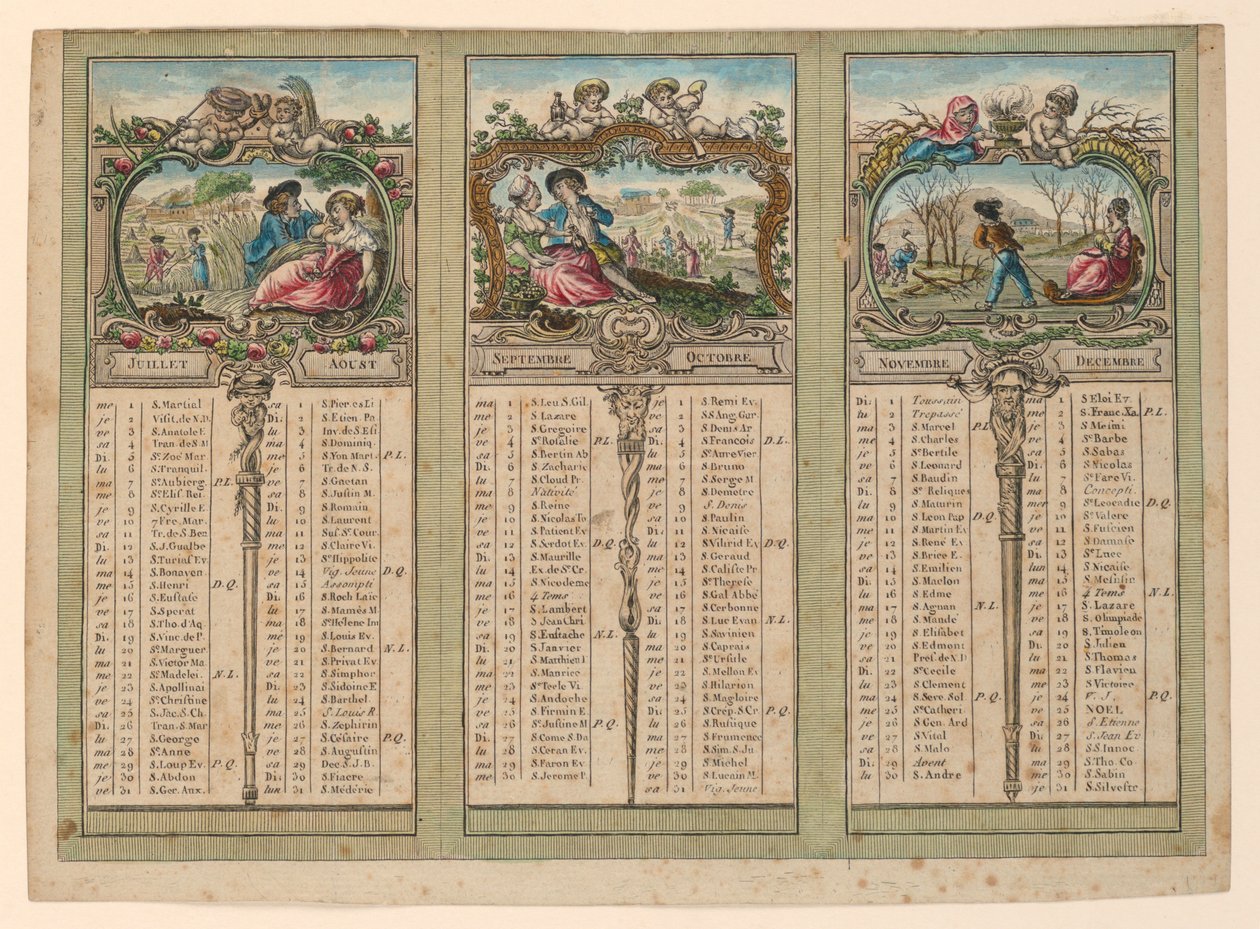 JUILLET
me 1 S.Martial
je 2 Visit.de N.D.
ve 3 S.Anatole E
sa 4 Tran.de S.M
Di. 5 Ste Zoé Mar.
lu 6 S.Tranquil.
ma 7 Ste Aubierg. P.L.
me 8 Ste Elif. Rei.
je 9 S.Cyrille E.
ve 10 7 Fre. Mar.
sa 11 Tr.de S.Ben
Di. 12 S.J.Gualbe
lu 13 S.Turiaf Ev.
ma 14 S.Bonaven
me 15 S.Henri D.Q.
je 16 S.Eustafe
ve 17 S.Sperat
sa 18 S.Tho.d'Aq.
Di. 19 S.Vinc.de P.
lu 20 Ste Marguer.
ma 21 S.Victor Ma.
me 22 Ste Madelei. N.L.
je 23 S.Apollinai
ve 24 Ste Christine
sa 25 S.Jac.S.Ch.
Di. 26 Tran.S.Mar
lu 27 S.George
ma 28 Ste Anne
me 29 S.Loup Ev. P.Q.
je 30 S.Abdon
ve 31 S.Ger.Aux.
AOUST
sa 1 S.Pier.es Li
Di. 2 S.Etien.Pa.
lu 3 Inv.de S.Eti
ma 4 S.Dominiq.
me 5 S.Yon Mart. P.L.
je 6 Tr.de N.S.
ve 7 S.Gaetan
sa 8 S.Justin M.
Di. 9 S.Romain
lu 10 S.Laurent
ma 11 Sus. Ste Cour.
me 12 S.Claire Vi.
je 13 St Hippolite
ve 14 Vig. Jeune D.Q.
sa 15 Assompti
Di. 16 S.Roch Laic
lu 17 S.Mamés M.
ma 18 Ste Helene Im
me 19 S.Louis Ev.
je 20 S.Bernard N.L.
ve 21 S.Privat Ev.
sa 22 S.Simphor
Di. 23 S.Sidoine E
lu 24 S.Barthel.
ma 25 S.Louis R.
me 26 S.Zephirin
je 27 S.Césaire P.Q.
ve 28 S.Augustin
sa 29 Dec.S.J.B.
Di. 30 S.Fiacre
lun 31 S.Médéric
SEPTEMBRE
ma 1 S.Leu S.Gil.
me 2 S.Lazare
je 3 S.Gregoire
ve 4 Ste Rosalie P.L.
sa 5 S.Bertin Ab
Di. 6 S.Zacharie
lu 7 S.Cloud Pr.
ma 8 Nativité
me 9 S.Reine
je 10 S.Nicolas To
ve 11 S.Patient Ev
sa 12 S.Serdot Ev. D.Q.
Di. 13 S.Maurille
lu 14 Ex.de Ste Cr.
ma 15 S.Nicodeme
me 16 4 Tems
je 17 S.Lambert
ve 18 S Jean Chri
sa 19 S.Eustache N.L.
Di. 20 S.Janvier
lu 21 S.Matthieu
ma 22 S.Maurice
me 23 Ste Tecle Vi.
je 24 S.Andoche
ve 25 S.Firmin E
sa 26 Ste Justine M P.Q.
Di. 27 S.Come S.Da
lu 28 S.Ceran Ev.
ma 29 S.Faron Ev.
me 30 S.Jerome P.
OCTOBRE
je 1 S.Remi Ev.
ve 2 S.S Ang.Gar.
sa 3 S.Denis Ar
Di. 4 S.Francois D.L.
lu 5 Ste Aure Vier
ma 6 S.Bruno
me 7 S.Serge M
je 8 S.Demetre
ve 9 S.Denis
sa 10 S.Paulin
Di. 11 S.Nicaise
lu 12 S.Vilfrid Ev D.Q.
ma 13 S.Geraud
me 14 S.Caliste Pr
je 15 Ste Therese
ve 16 S.Gal Abbé
sa 17 S.Cerbonne
Di. 18 S.Luc Evan N.L.
lu 19 S.Savinien
ma 20 S.Caprais
me 21 Ste Ursule
je 22 S.Mellon Ev
ve 23 S.Hilarion
sa 24 S.Magloire
Di. 25 S.Crép.S.Cr P.Q.
lu 26 S.Rustique
ma 27 S.Frumence
me 28 S.Sim.S.Ju
je 29 S.Michel
ve 30 S.Lucain M.
sa 31 Vig. Jeune
NOVEMBRE
Di. 1 Toussain
lu 2 Trepassé
ma 3 S.Marcel P.L
me 4 S.Charles
je 5 Ste Bertile
ve 6 S.Leonard
sa 7 S.Baudin
Di. 8 Stes Reliques
lu 9 S.Maturin
ma 10 S.Leon Pap D.Q.
me 11 S.Martin Ev
je 12 S.René Ev
ve 13 S.Brice E.
sa 14 S.Emilien
Di. 15 S.Maclon
lu 16 S.Edme
ma 17 S.Agnan N.L.
me 18 S.Mandé
je 19 S.Elisabet
ve 20 S.Edmont
sa 21 Pref.de N.D
Di. 22 Ste Cecile
lu 23 S.Clement
ma 24 S.Seve.Sol P.Q.
me 25 Ste Catheri
je 26 S.Gen.Ard
ve 27 S.Vital
sa 28 S.Malo
Di. 29 Avent
lu 30 S.Andre
DECEMBRE
ma 1 S Eloi Ev.
me 2 S.Franc.Xa. P.L.
je 3 S.Mesmi
ve 4 Ste Barbe
sa 5 S.Sabas
Di. 6 S.Nicolas
lu 7 Ste Fare Vi.
ma 8 Concepti.
mer 9 Ste Leocadie D.Q.
je 10 Ste Valere
ve 11 S.Fuscien
sa 12 S.Damase
Di. 13 Ste Luce
lun 14 S.Nicaise
ma 15 S.Mesmin
me 16 4 Tems N.L.
je 17 S.Lazare
ve 18 S.Olimpiade
sa 19 S.Timoleon
Di. 20 S.Julien
lu 21 S.Thomas
ma 22 S.Flavien
me 23 S.Victoire
je 24 V. J. P.Q.
ve 25 NOEL
sa 26 S.Etienne
Di. 27 S.Jean Ev
lu 28 S.S.Innoc.
ma 29 S.Tho.Co
me 30 S.Sabin
je 31 S.Silvestr